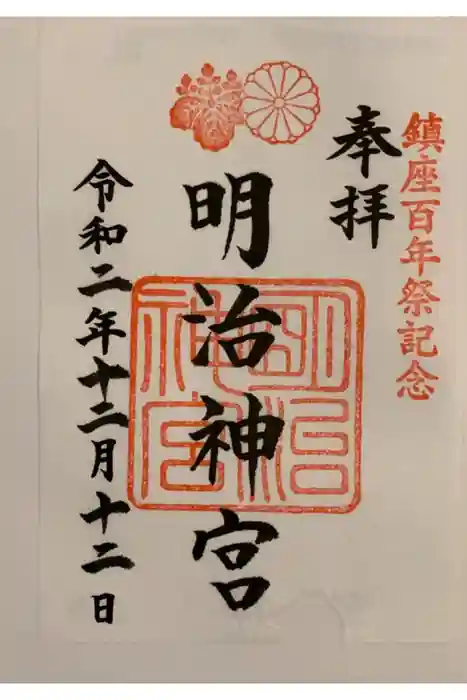 鎮座百年祭記念
奉拝
明治神宮
明治神宮
令和二年十二月十二日